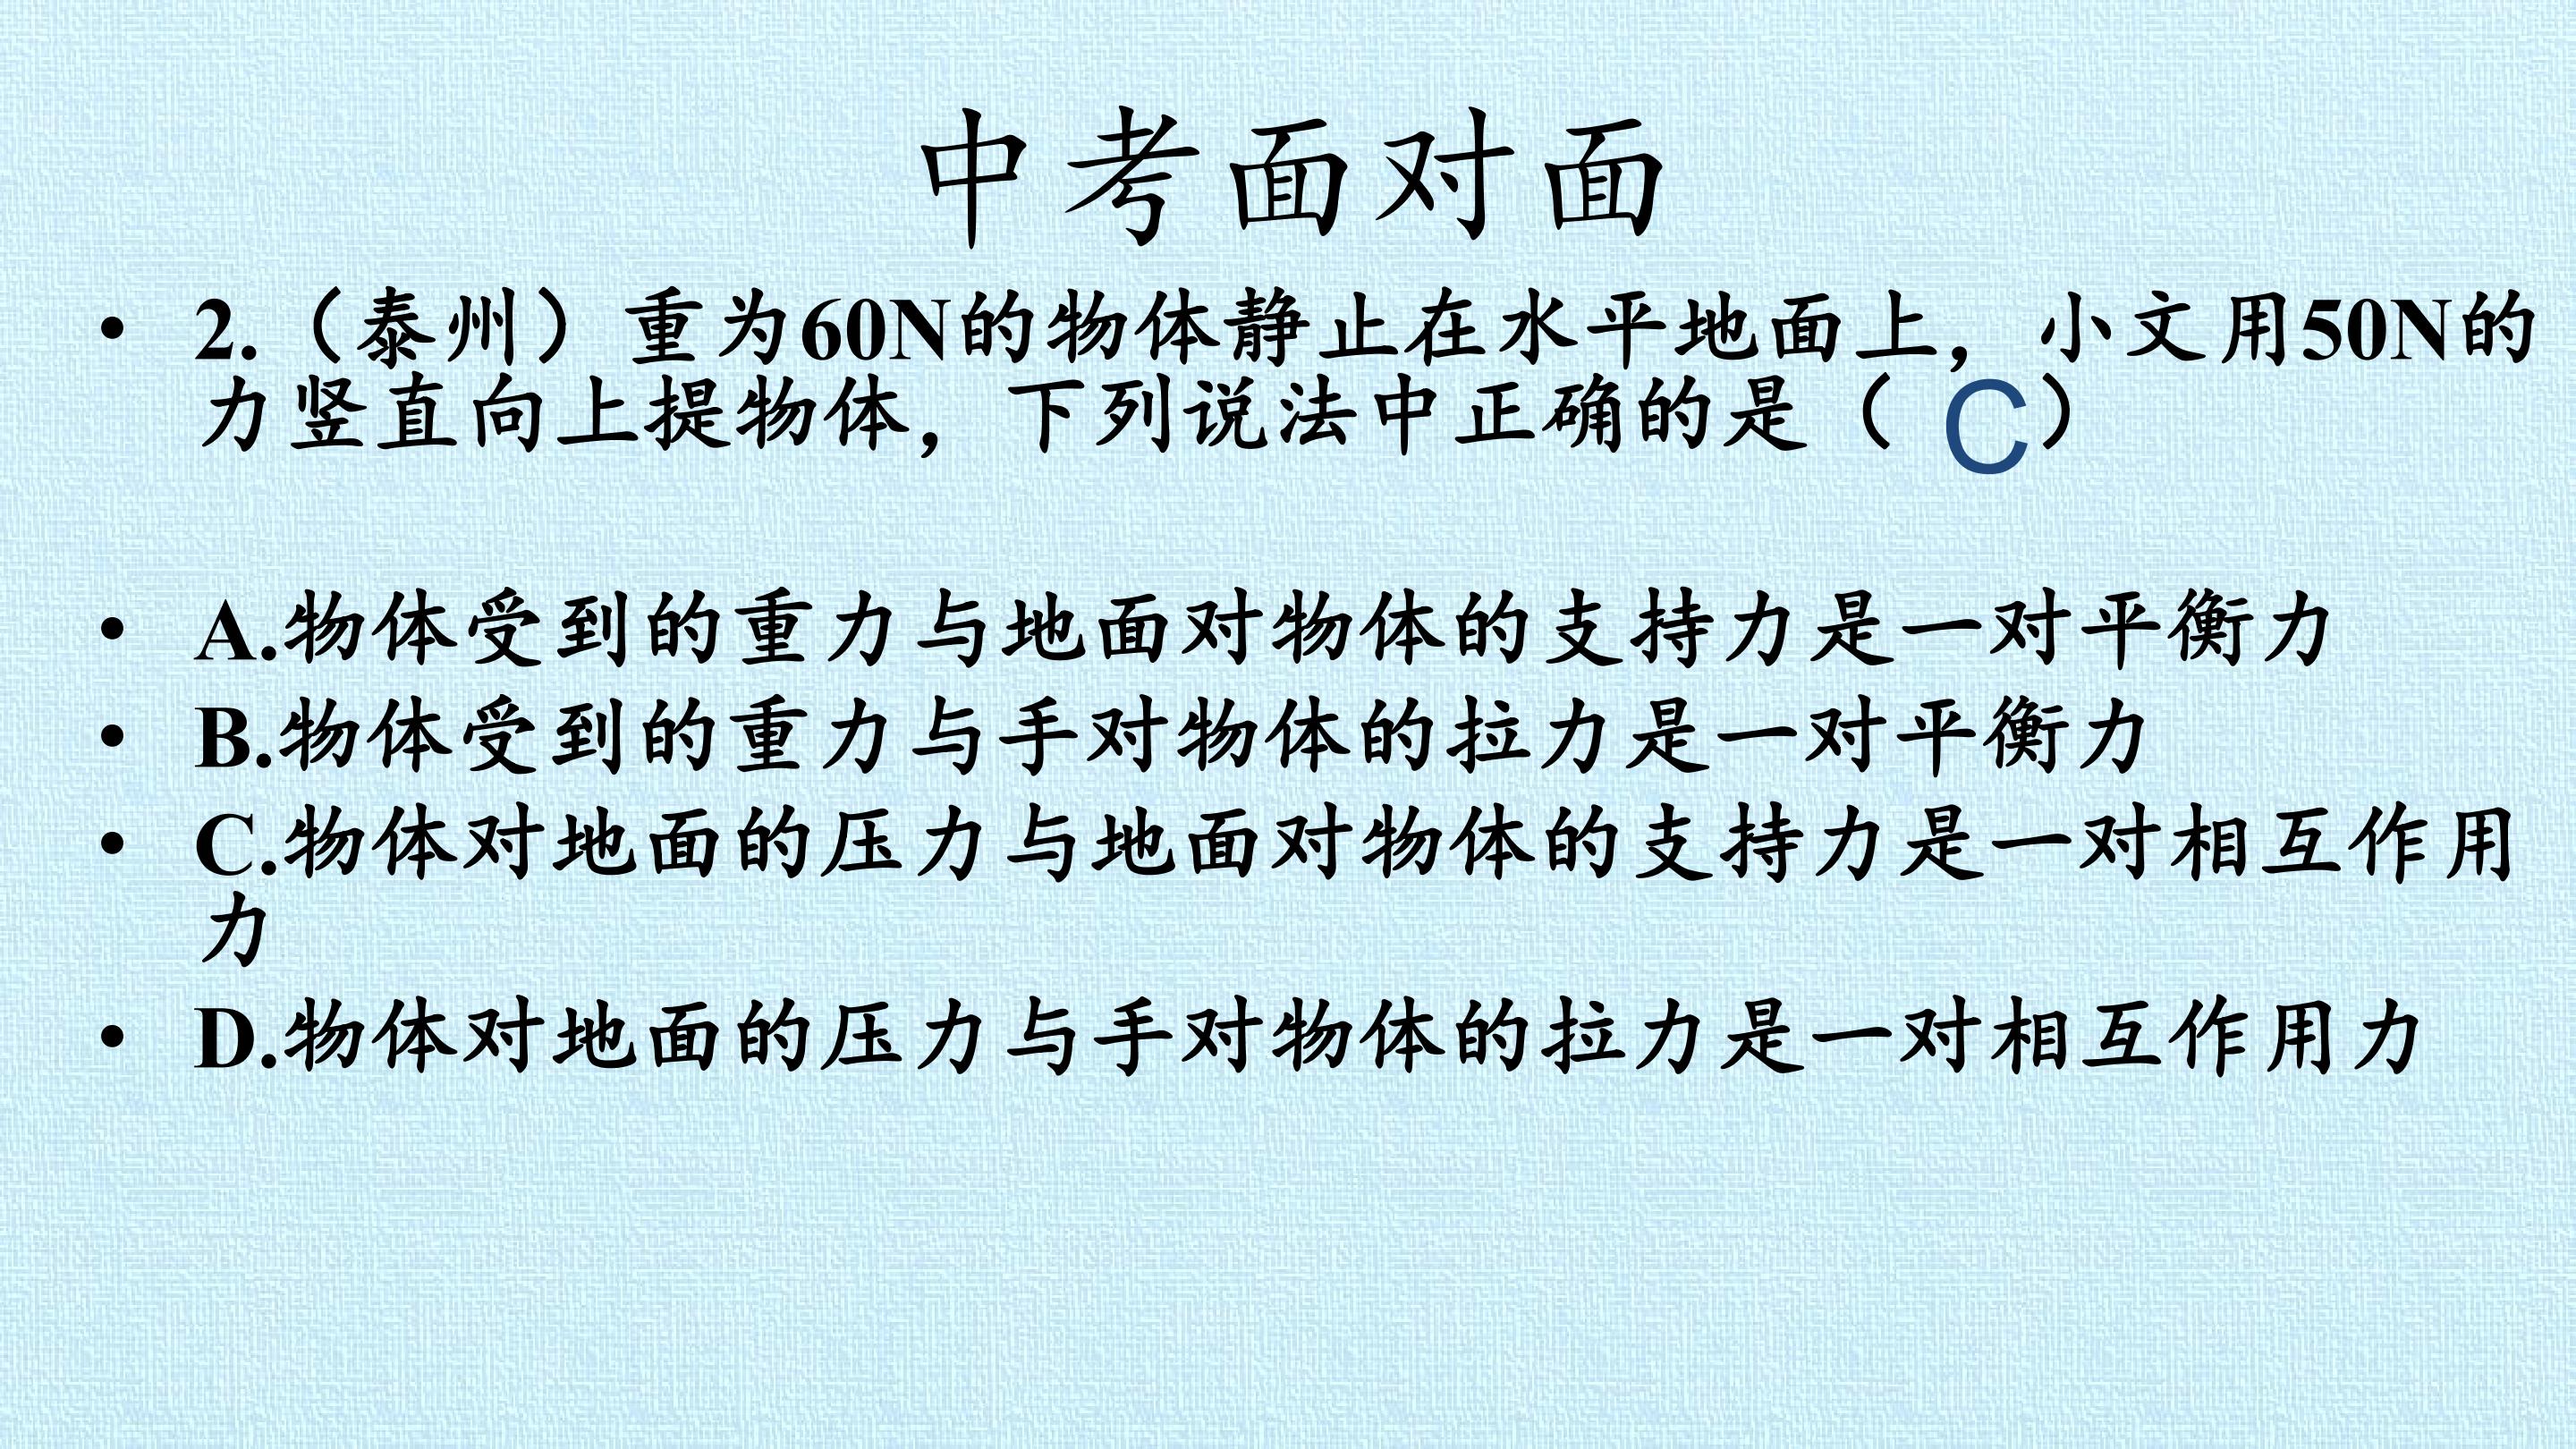 中考面对面
• 2.（泰州）重为60N的物体静止在水平地面上，小文用50N的
力竖直向上提物体，下列说法中正确的是（ C ）
• A.物体受到的重力与地面对物体的支持力是一对平衡力
• B.物体受到的重力与手对物体的拉力是一对平衡力
• C.物体对地面的压力与地面对物体的支持力是一对相互作用
力
• D.物体对地面的压力与手对物体的拉力是一对相互作用力